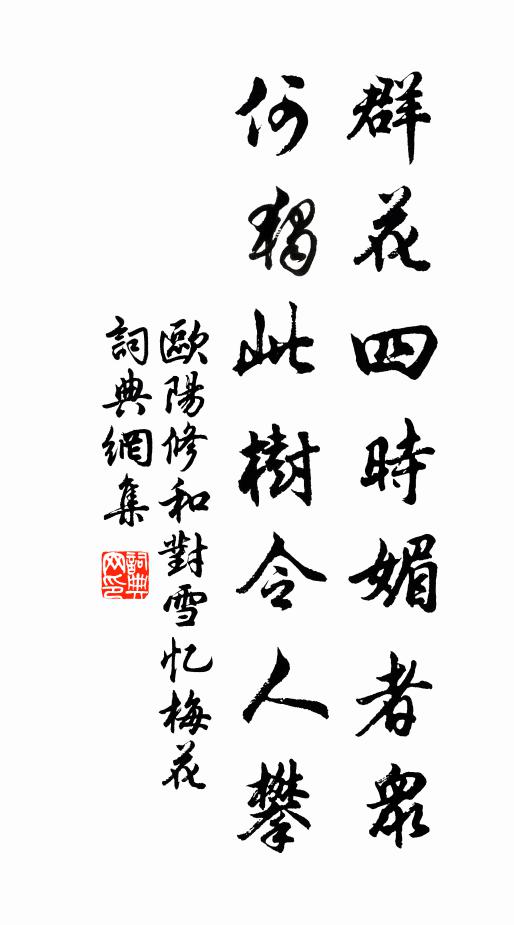 群花四時媚者衆
何獨此樹令人攀
歐陽修和對雪忆梅花
詞典網集
詞典網印